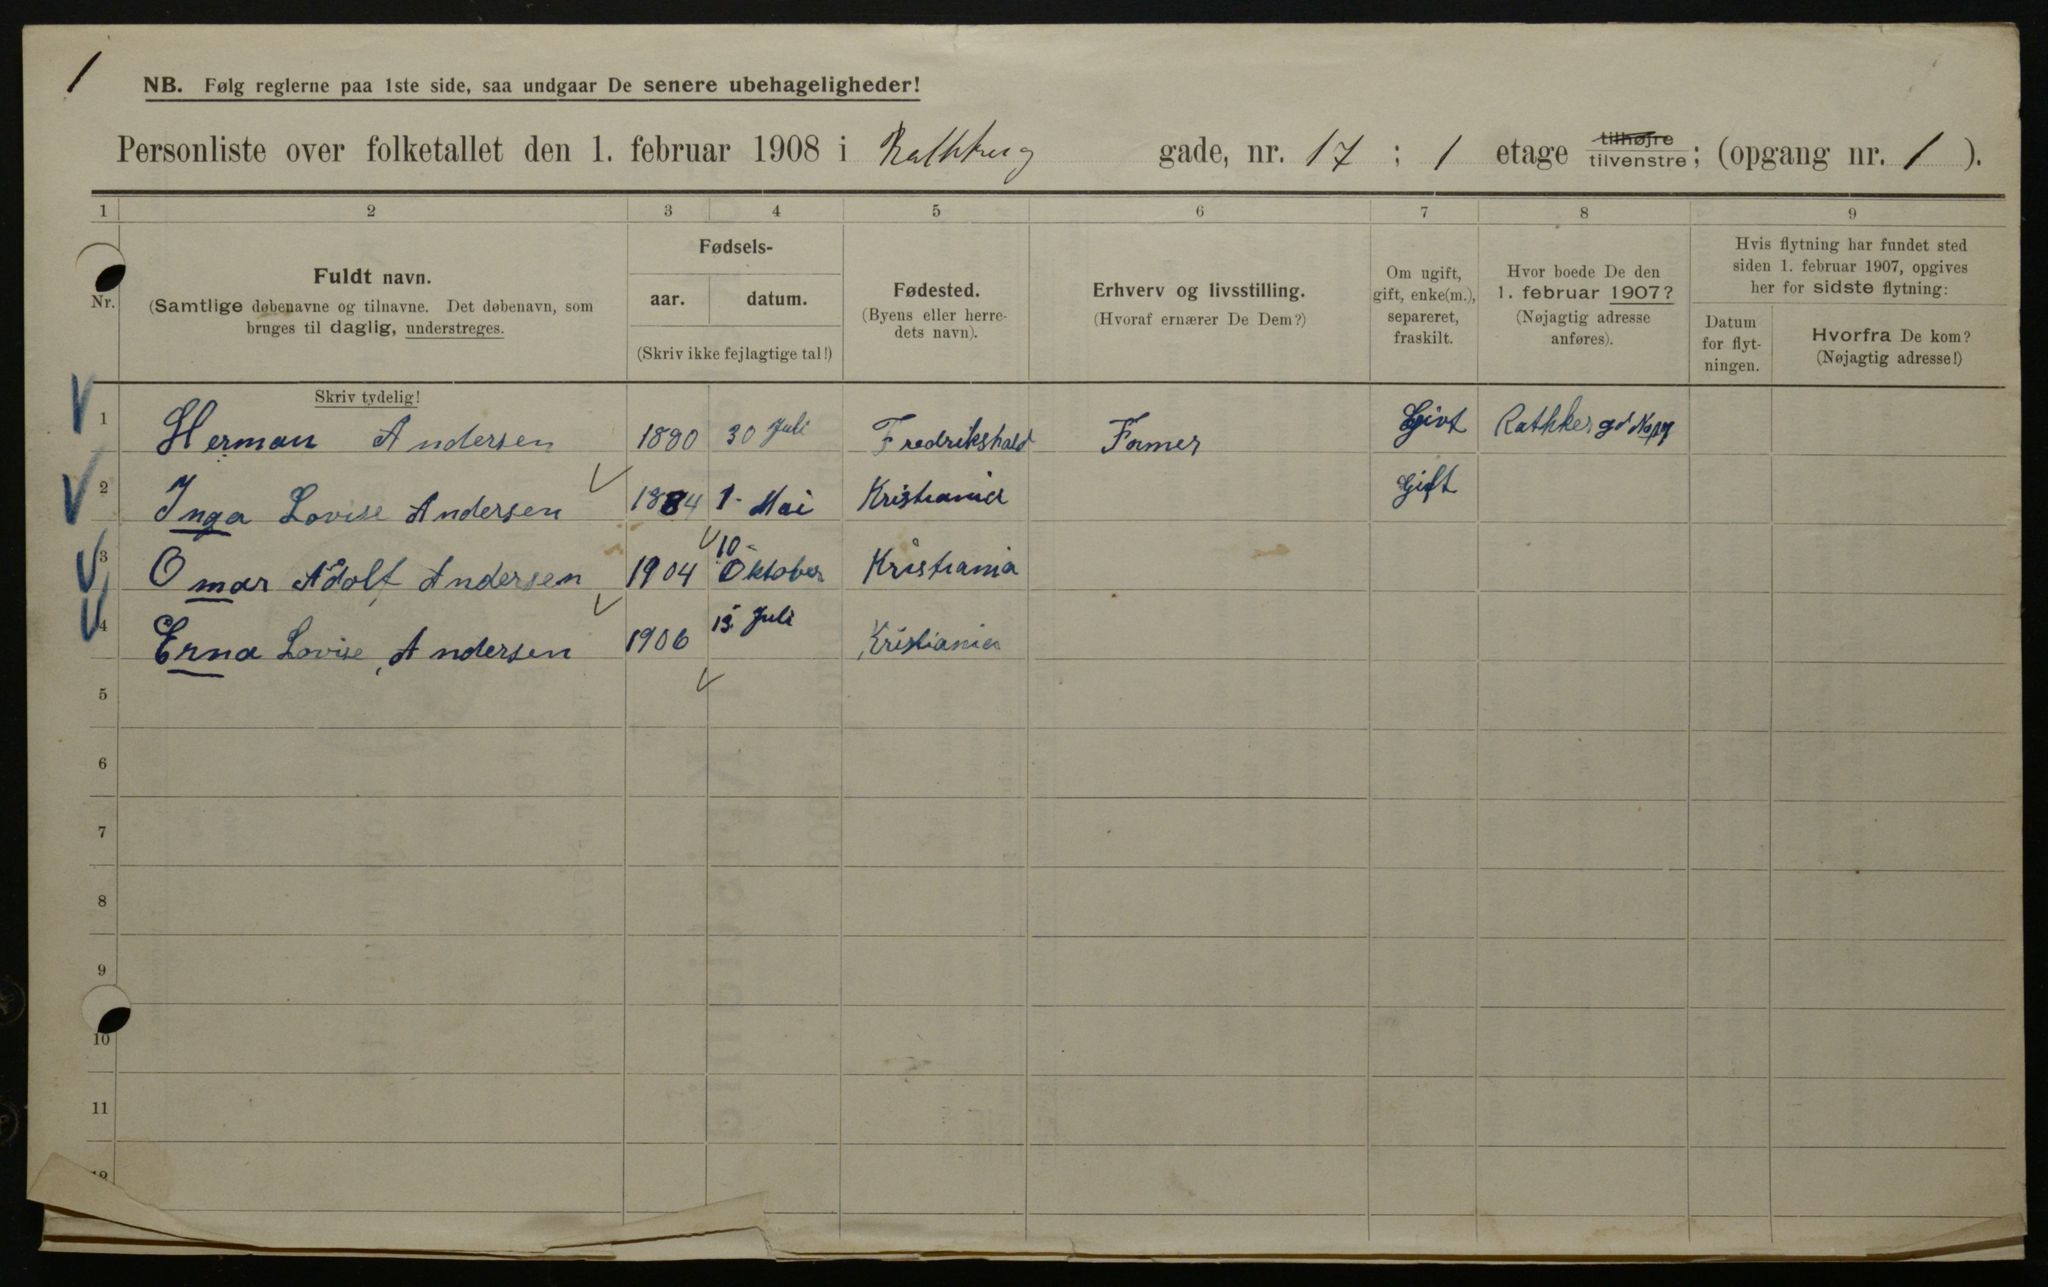 1
NB. Følg reglerne paa 1ste side, saa undgaar De senere ubehageligheder!
Personliste over folketallet den 1. februar 1908 i Rathkeg gade, nr. 17 ; 1 etage tilhøjre tilvenstre; (opgang nr. 1 ).
1 2 3 4 5 6 7 8 9
Nr.
Fuldt navn.
(Samtlige døbenavne og tilnavne. Det døbenavn, som
bruges til daglig, understreges.
Skriv tydelig!
Fødsels-
aar. datum.
(Skriv ikke fejlagtige tal!)
Fødested.
(Byens eller herre-
dets navn).
Erhverv og livsstilling.
(Hvoraf ernærer De Dem?)
Om ugift,
gift, enke(m.),
separeret,
fraskilt.
Hvor boede De den
1. februar 1907?
(Nøjagtig adresse
anføres).
Hvis flytning har fundet sted
siden 1. februar 1907, opgives
her for sidste flytning:
Datum
for flyt-
ningen.
Hvorfra De kom?
(Nøjagtig adresse!)
1 Herman Andersen 1880 30 Juli Fredrikshald Former Givt Rathkesgd
2 Inga Lovise Andersen 1884 1 Mai Kristiania Gift
3 Omar Adolf Andersen 1904 10 Oktober Kristiania
4 Erna Lovise Andersen 1906 13 Juli Kristiania
5
6
7
8
9
10
11
12